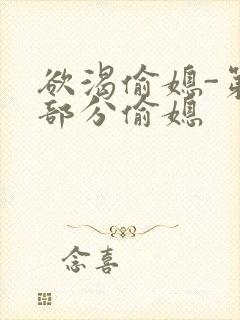 欲渴偷媳-第
部分偷媳
念喜